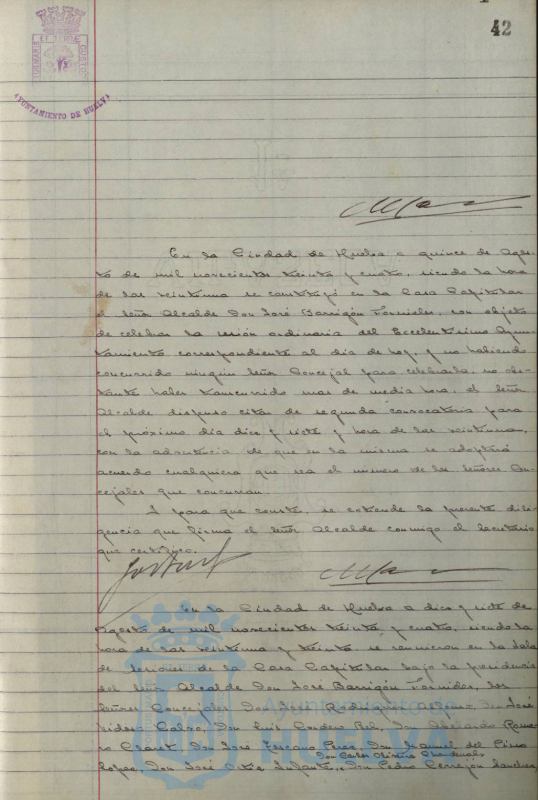 42
AYUNTAMIENTO DE HUELVA
En la Ciudad de Huelva a quince de Agos-
to de mil novecientos treinta y cuatro, siendo la hora
de las veintiuna se constituyó en la Casa Capitular
el Señor Alcalde Don José Barrigón Fornieles, con objeto
de celebrar la sesión ordinaria del Excelentísimo Ayun-
tamiento correspondiente al día de hoy, y no habiendo
concurrido ningún Señor Concejal para celebrarla, no obs-
tante haber transcurrido mas de media hora, el Señor
Alcalde dispuso citar de segunda convocatoria para
el próximo día diez y siete y hora de las veintiuna,
con la advertencia de que en la misma se adoptará
acuerdo cualquiera que sea el número de los Señores Con-
cejales que concurran.
Y para que conste, se extiende la presente dili-
gencia que firma el Señor Alcalde conmigo el Secretario
que certifico.
En la Ciudad de Huelva a diez y siete de
Agosto de mil novecientos treinta y cuatro, siendo la
hora de las veintiuna y treinta se reunieron en la Sala
de Sesiones de la Casa Capitular bajo la presidencia
del Señor Alcalde Don José Barrigón Fornieles, los
Señores Concejales Don José Rodríguez Don José
Don Luis Cordero Bel, Don Abelardo Rome-
ro Claret, Don José Pérez, Don Manuel del Pino
Don Carlos Oliveira
López, Don José Ortiz Infante, Don Pedro Cerrejón Sánchez,
Ayuntamiento
HUELVA